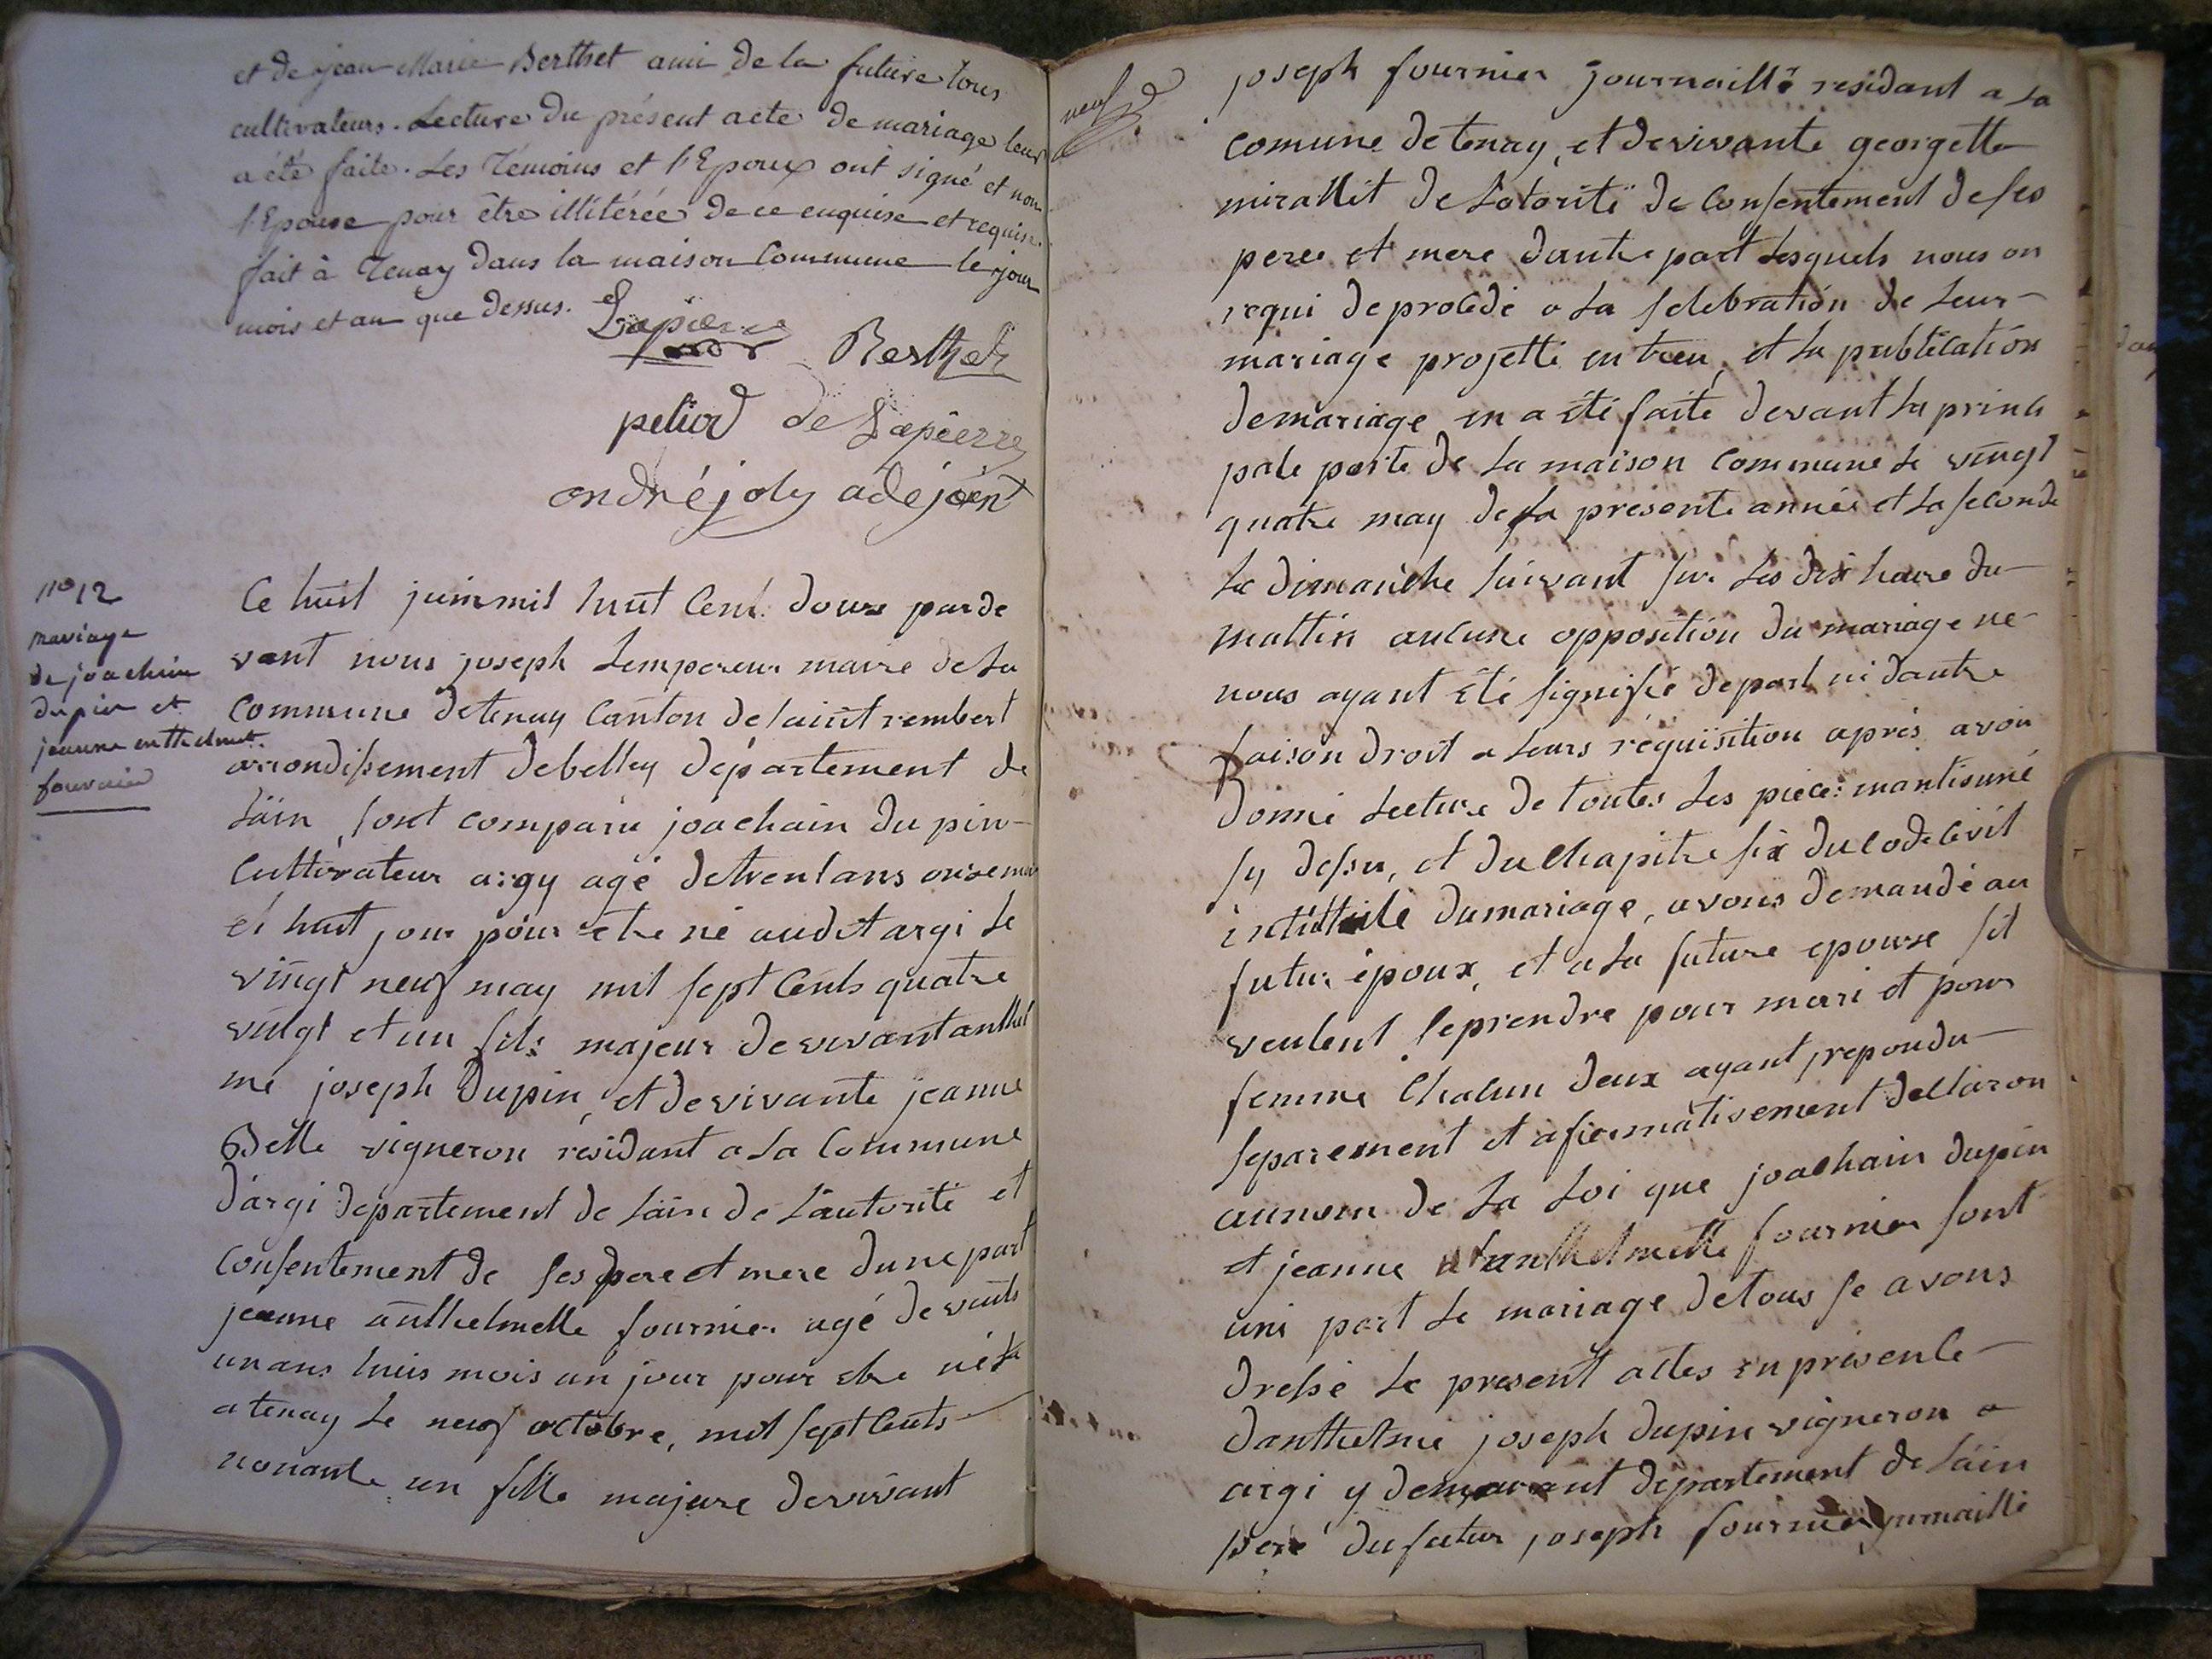 et de jean Marie Berthet ami de la future tous
cultivateurs. Lecture du présent acte de mariage leur
a été faite. Les Témoins et l'Epoux ont signé et non
l'Epouse pour être illitérée de ce enquise et requise.
fait à Tenay dans la maison Commune le jour
mois et an que dessus.
Lapierre
Berthet
de Lapierre
andré joly adejoent
n° 12
mariage
de joachim
dupin et
jeanne enthelmet.
Ce huit juin mil huit Cent douze parde
vant nous joseph Lempereur maire de La
Commune detenay Canton desaint rembert
arrondissement debelley département de
Láin, sont comparu joachain du pin
Cultivateur argy agé detrentans onzemois
et huit jour pour etre né audit argi Le
vingt neuf may mil sept Cents quatre
vingt et un fils majeur devivantanthel
me joseph Dupin, et devivante jeanne
Belle vigneron résidant a La Commune
d'argi département de Láin de Láutorité et
Consentement de ses pere et mere dune part
jeanne anthelmette fournier agé de vents
unans huis mois un jour pour etre née
a tenay Le neuf octobre, mil septCents
nonante un fille majeure devivant
neuf
joseph fournier journaillé residant a La
comune detenay, et devivante georgette
mirallit de Lotorité de Consentement de ses
peres et mere dautre part Lesquels nous on
requi de procedé a La selebration de Leur
mariage projetté entreu, et La publication
demariage en a été faite devant La princi
pale porte de La maison Commune Le vingt
quatre may de La présente année et La seconde
Le dimanche suivant sur Les dix heure du
mattin aucune opposition du mariage ne
nous ayant été signifié depart ni dautre
faison droit a Leurs réquisition aprés avoir
Donné Lecture de toutes Les pieces mantisuné
sy dessu, et du Chapitre six ducodeCivil
intittule dumariage, avons demandé au
futur époux, et a La future epouse sil
veulent seprendre pour mari et pour
femme Chacun deux ayant repondu
separement et afirmativement dellaron
aunom de La Loi que joachain dupin
et jeanne anthelmette fournier sont
uni part Le mariage detous se avons
dressé Le present actes en présence
danthelme joseph dupin vigneron a
argi y demeurant département de Láin
pere du futur joseph fournier jurnaillé